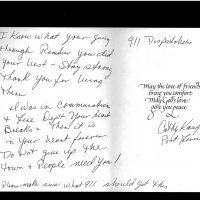 I know what your going
through Remember you did
your best - Stay strong
Thank you for being
there
I was in Communications
& Fire Dept Your heart
Breaks & then it is
in your heart forever
Do not give up the
town & People need You!
Please make sure what 911 should get this
911 Dispatchers
May the love of friends
bring you comfort.
May God's love
give you peace.
Cathy
Port